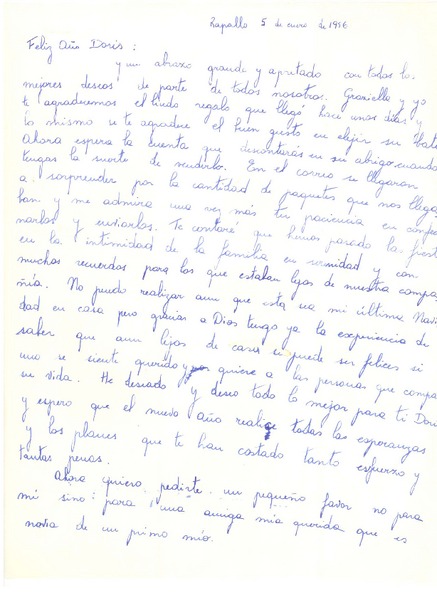 Rapallo 5 de enero de 1956
Feliz Año Doris:
y un abrazo grande y apretado con todos los
mejores deseos de parte de todos nosotros. Graciella y yo
te agradecemos el lindo regalo que llegó hace unos días y
lo mismo se te agradece el buen gusto en elijir su
Ahora espera la cuenta que descontarás en su abrigo cuando
tengas la suerte de venderlo. En el correo se llegaron
a sorprender por la cantidad de paquetes que nos llega
ban y me admira una vez más tu paciencia en
narlos y enviarlos. Te contaré que hemos pasado las fiestas
en la intimidad de la familia en serenidad y con
muchos recuerdos para los que estaban lejos de nuestra compa
ñía. No puedo realizar aun que esta sea mi última Navi
dad en casa pero gracias a Dios tengo ya la experiencia de
saber que aun lejos de casa se puede ser felices si
uno se siente querido y quiere a las personas que compar
su vida. He deseado y deseo todo lo mejor para ti Doris
y espero que el nuevo año realize todas las esperanzas
y los planes que te han costado tanto esfuerzo y
tantas penas.
Ahora quiero pedirte un pequeño favor no para
mi sino para una amiga mia querida que es
novia de un primo mío.